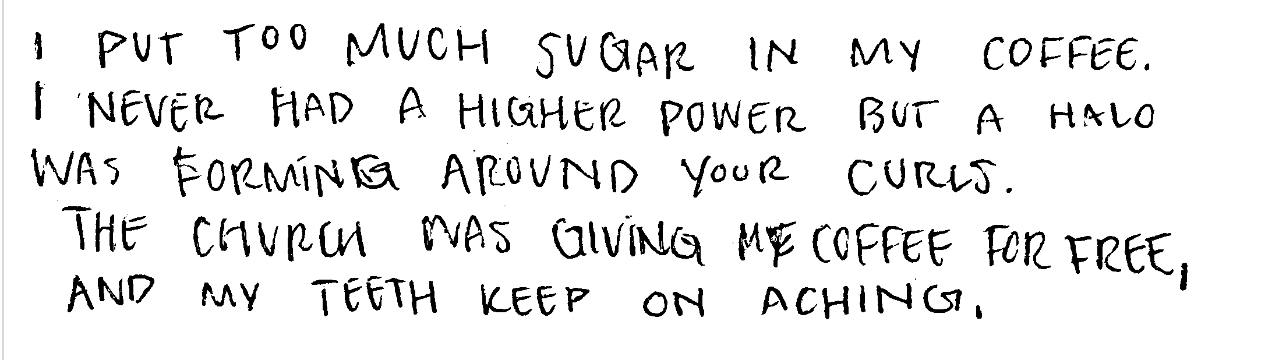 I PUT TOO MUCH SUGAR IN MY COFFEE.
I NEVER HAD A HIGHER POWER BUT A HALO
WAS FORMING AROUND YOUR CURLS.
THE CHURCH WAS GIVING ME COFFEE FOR FREE,
AND MY TEETH KEEP ON ACHING.